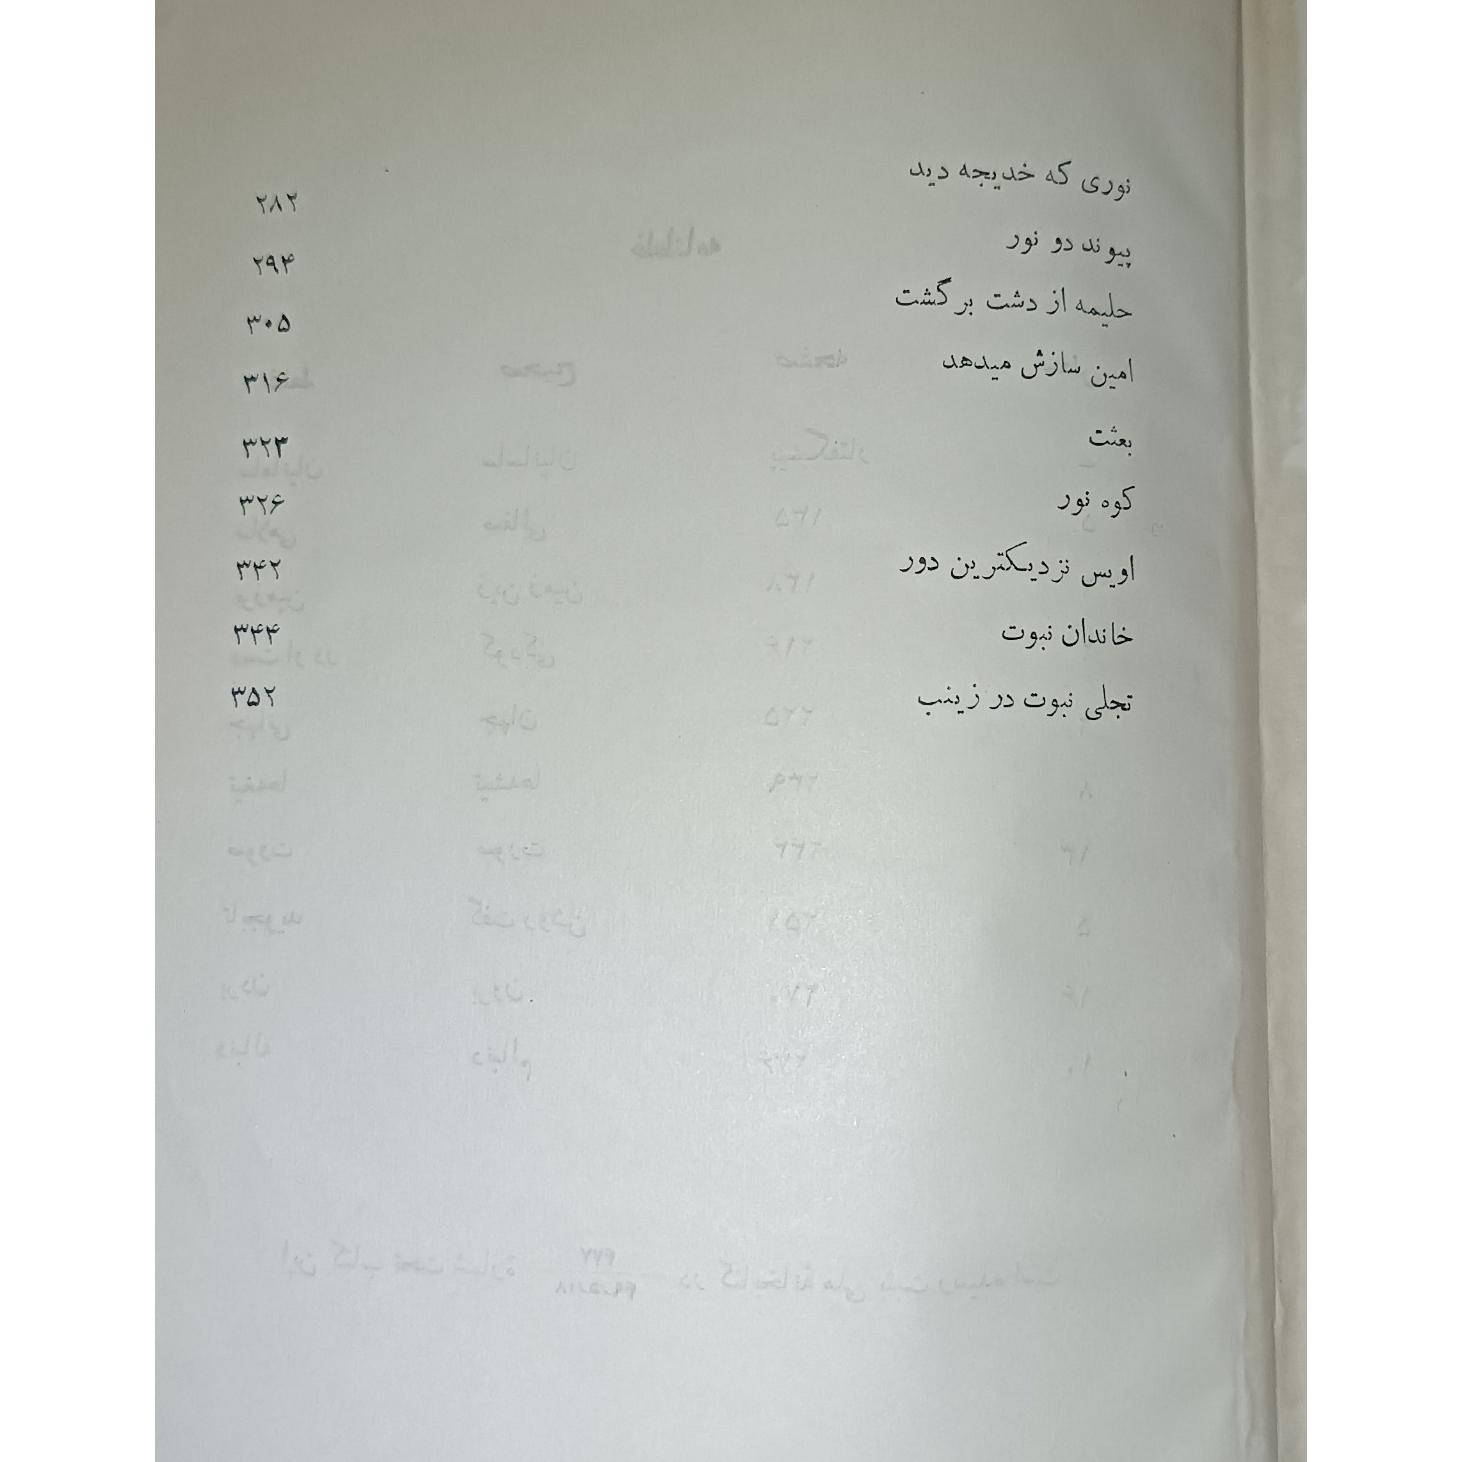 نوری که خدیجه دید ۲۸۲
پیوند دو نور ۲۹۴
حلیمه از دشت برگشت ۳۰۵
امین سازش میدهد ۳۱۶
بعثت ۳۲۳
کوه نور ۳۲۶
اویس نزدیکترین دور ۳۴۲
خاندان نبوت ۳۴۴
تجلی نبوت در زینب ۳۵۲